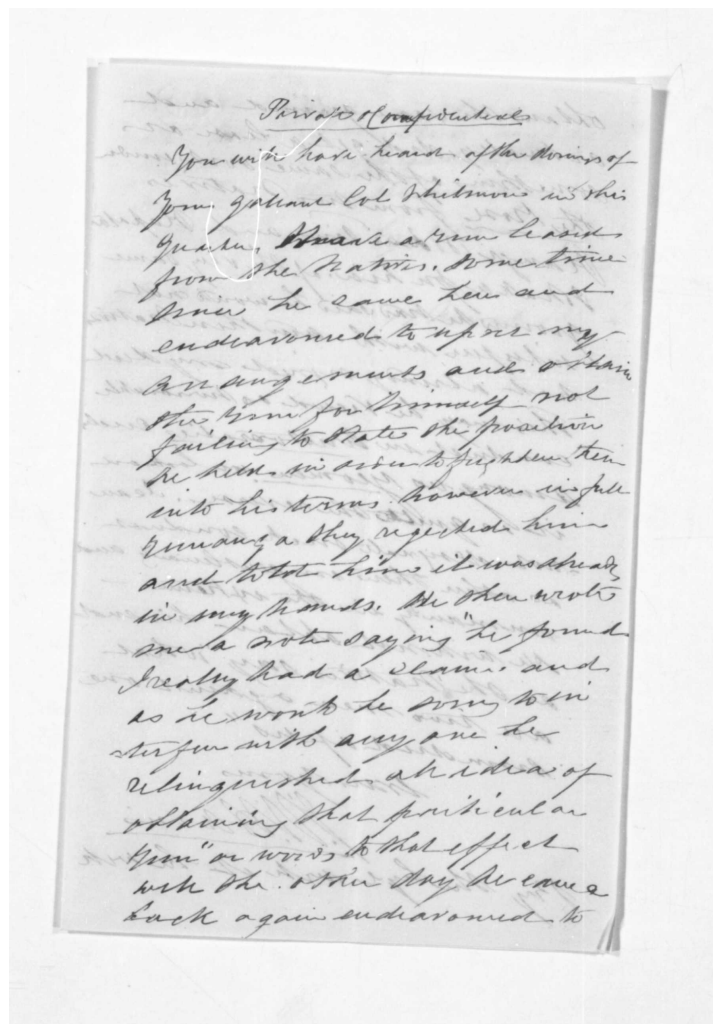 Private & Confidential
You will have heard of the doings of
your gallant Col Whitmore in this
quarter. I have a run leased
from the Natives. Some time
since he came here and
endeavoured to upset my
arrangements and obtain
the run for himself not
failing to state the position
he held in order to frighten them
into his terms. However in full
runanga they rejected him
and told him it was already
in my hands. He then wrote
me a note saying "he found
I really had a claim and
as he would be sorry to in
terfere with any one he
relinquished all idea of
obtaining that particular
run" or words to that effect
well the other day he came
back again endeavoured to